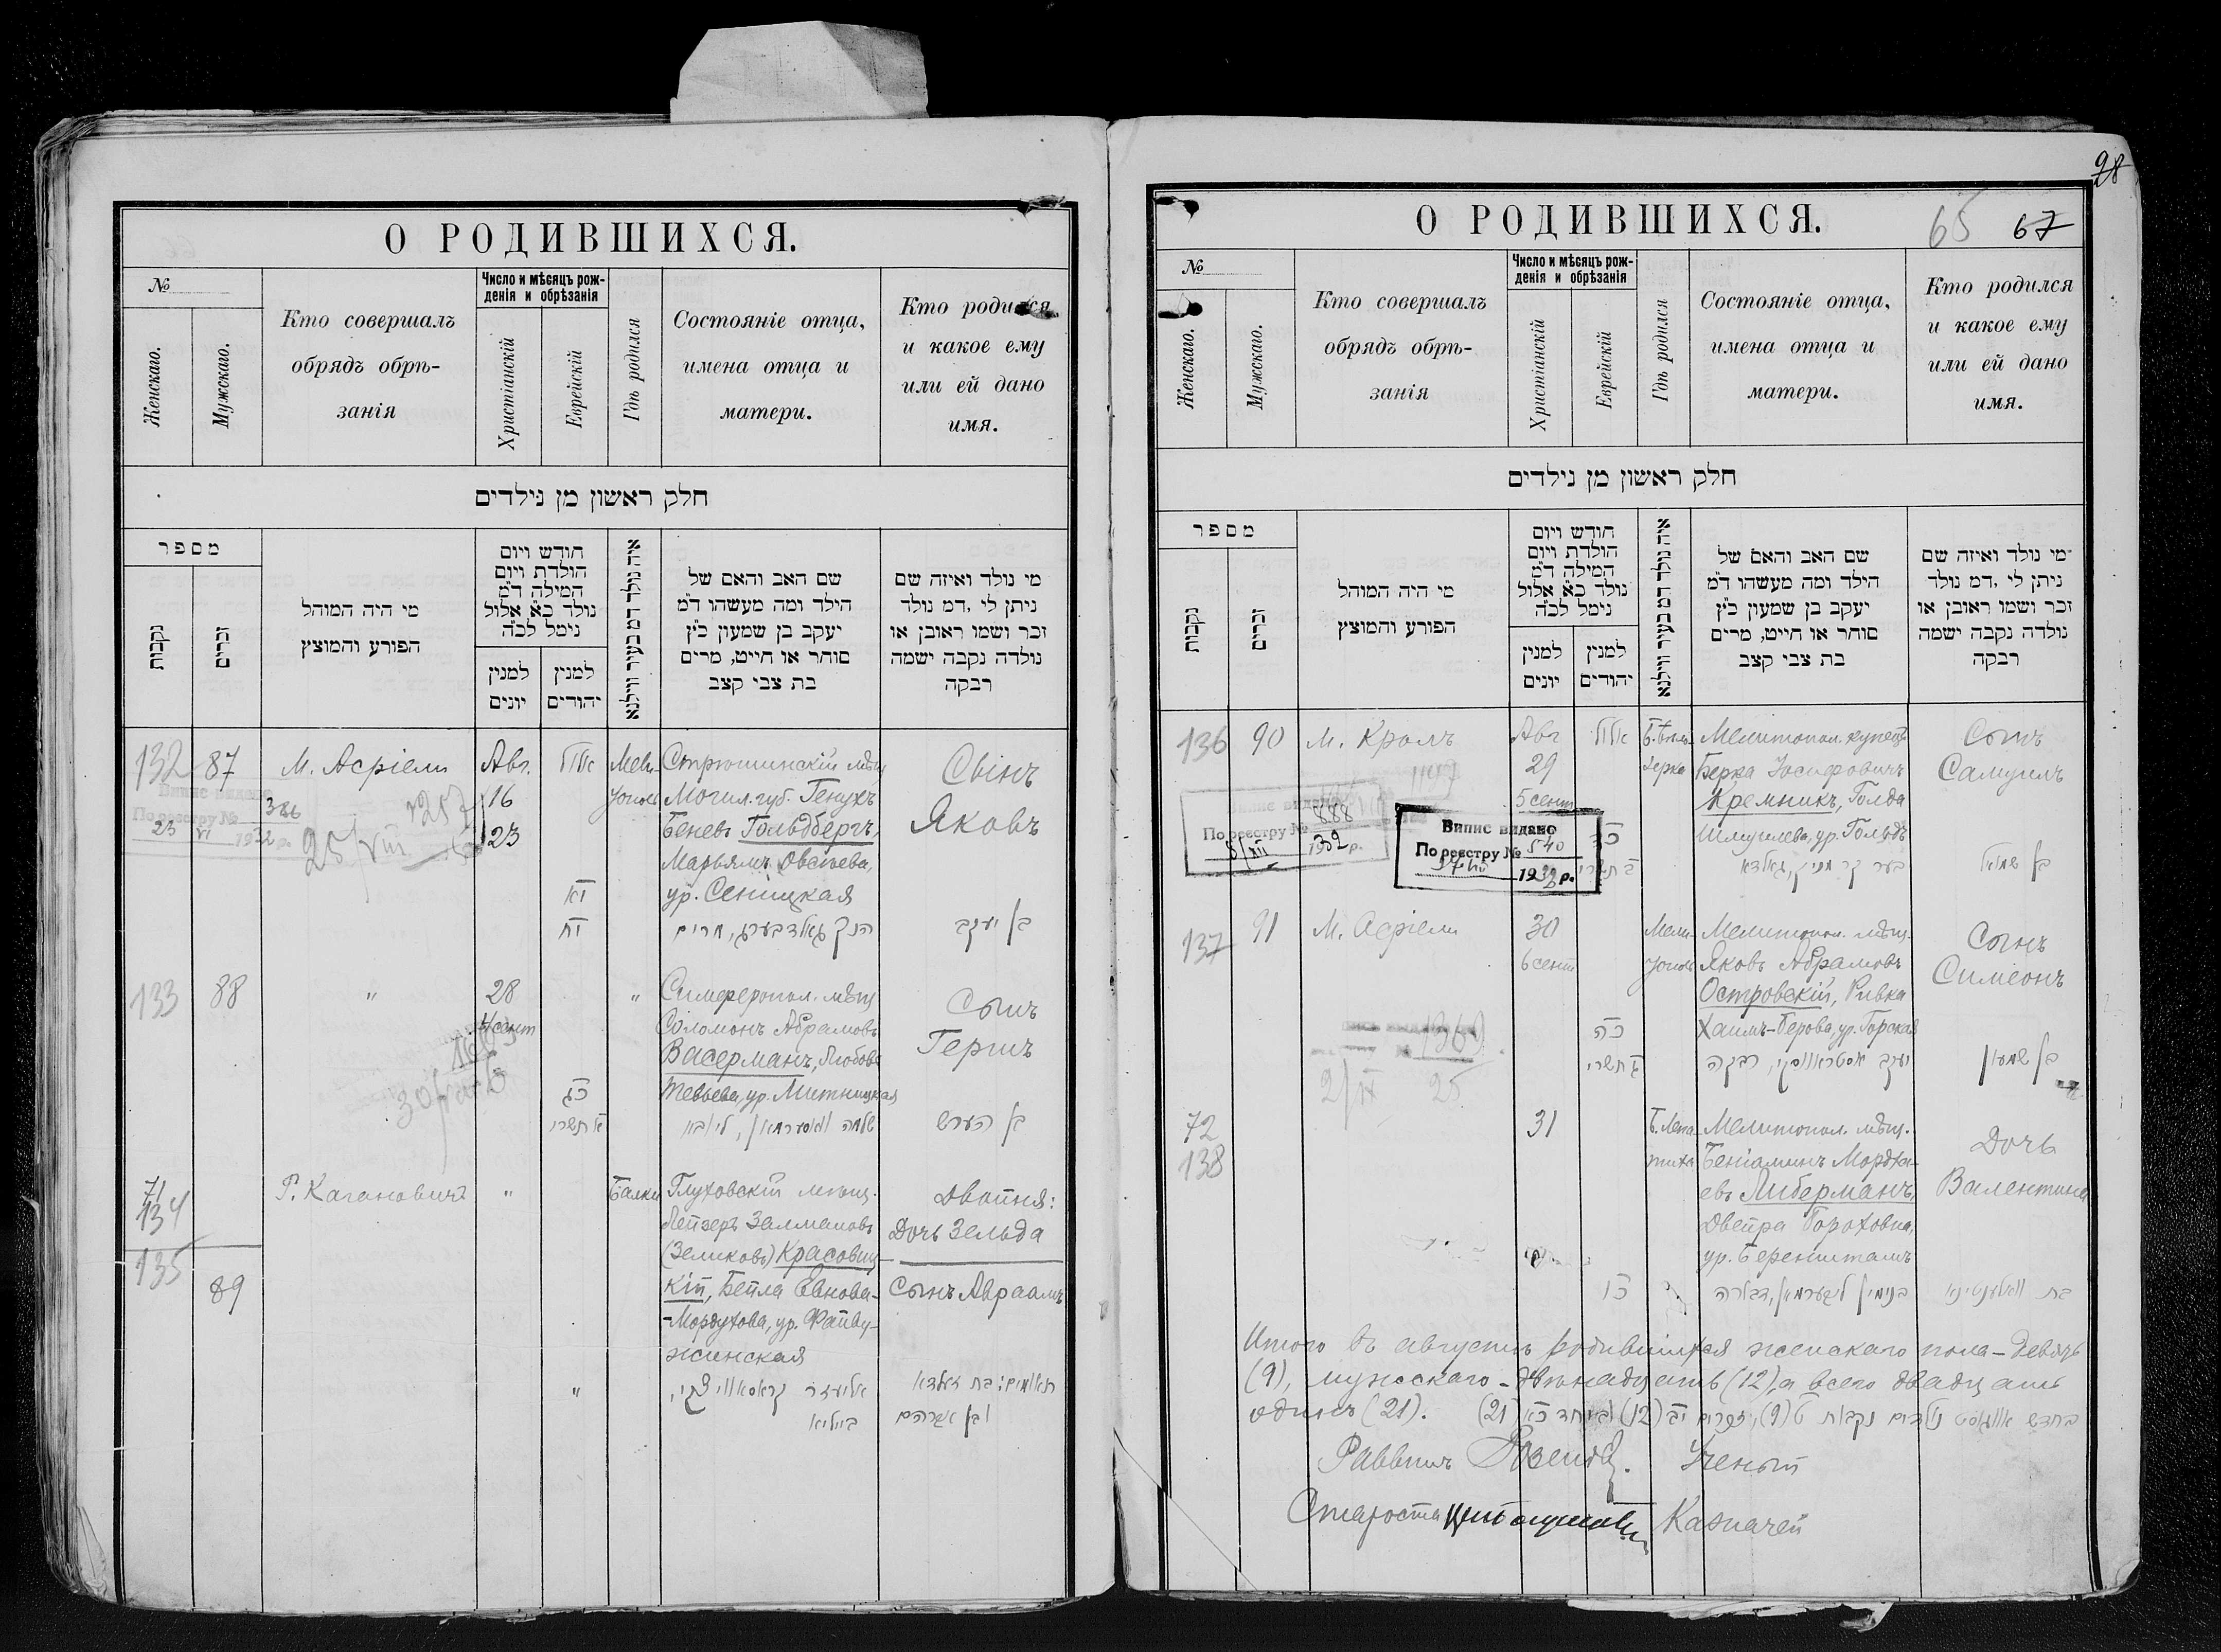 О РОДИВШИХСЯ.
№
Женскаго.
Мужскаго.
Кто совершалъ
обрядъ обрѣ-
занія
Число и мѣсяцъ рож-
денія и обрѣзанія
Христіанскій
Еврейскій
Гдѣ родился
Состояніе отца,
имена отца и
матери.
Кто родился
и какое ему
или ей дано
имя.
חלק ראשון מן נילדים
מספר
נקבות
זכרים
מי היה המוהל
הפורע והמוצץ
חודש ויום
הולדת ויום
המילה ד״מ
נולד כא אלול
נימל לכ״ה
למנין
יונים
למנין
יהודים
איה נולד דמ בעיר ווילנא
שם האב והאם של
הילד ומה מעשהו ד״מ
יעקב בן שמעון כ״ץ
סוחר או חייט, מרים
בת צבי קצב
מי נולד ואיזה שם
ניתן לי ,דמ נולד
זכר ושמו ראובן או
נולדה נקבה ישמה
רבקה
132
87
М. Асріели
Авг.
16
23
אלול
יא
יח
Мели
тополь
Могил. губ. Генухъ
Беневъ Гольдбергъ,
Марьямъ Овсѣева,
ур. Сеницкая
הנך גאלדבערג, מרים
Сынъ
Яковъ
בן יעקב
Випис видано
По реєстру № 386
23 VI 1932 р.
1257
25/VIII
133
88
"
28
4/сент
כג
א תשרי
"
Симферопол. мѣщ
Соломонъ Абрамовъ
Васерманъ, Любовь
Тевьева, ур. Митницкая
Сынъ
Гершъ
בן הערש
71
134
135
89
Г. Кагановичъ
"
"
Балки
Глуховскій мѣщ.
Лейзеръ Залмановъ
(Зелиховъ) Красовиц-
кій, Бейла Евнова-
-Мордухова, ур. Файву-
жинская
Двойня:
Дочь Зельда
Сынъ Авраамъ
תאומים: בת זעלדא
ובן אברהם
98
О РОДИВШИХСЯ.
65 67
№
Женскаго.
Мужскаго.
Кто совершалъ
обрядъ обрѣ-
занія
Число и мѣсяцъ рож-
денія и обрѣзанія
Христіанскій
Еврейскій
Гдѣ родился
Состояніе отца,
имена отца и
матери.
Кто родился
и какое ему
или ей дано
имя.
חלק ראשון מן נילדים
מספר
נקבות
זכרים
מי היה המוהל
הפורע והמוצץ
חודש ויום
הולדת ויום
המילה ד״מ
נולד כא אלול
נימל לכ״ה
למנין
יונים
למנין
יהודים
איה נולד דמ בעיר ווילנא
שם האב והאם של
הילד ומה מעשהו ד״מ
יעקב בן שמעון כ״ץ
סוחר או חייט, מרים
בת צבי קצב
מי נולד ואיזה שם
ניתן לי ,דמ נולד
זכר ושמו ראובן או
נולדה נקבה ישמה
רבקה
136
90
М. Кролъ
Авг
29
5 сент
אלול
כד
ב תשרי
Мелитопол. купецъ
Берка Іосифовичъ
Кремникъ, Голда
Шмуилева, ур. Гольдъ
Сынъ
Самуилъ
בן שמואל
Випис видано
По реєстру № 888
8/XII 1932 р.
Випис видано
По реєстру № 540
1932 р.
137
91
М. Асріели
30
6 сент
כה
ג תשרי
Мели-
тополь
Мелитопол. мѣщ.
Яковъ Абрамовъ
Островскій, Ривка
Хаимъ-Берова, ур. Горская
יעקב אסטראווסקי, רבקה
Сынъ
Симеонъ
בן שמעון
1369
25
72
138
31
כו
Б. Лепа
тиха
Мелитопол. мѣщ.
Беніаминъ Мордха-
евъ Либерманъ,
Двейра Бороховна,
ур. Беренштамъ
בנימין ליבערמאן, דבורה
Дочь
Валентина
בת וואלענטינא
Итого въ августѣ родившихся женскаго пола - девять
(9), мужскаго - двѣнадцать (12), а всего двадцать
одинъ (21). בחדש אווגוסט נולדים נקבות ט (9), זכרים יב (12) וביחד כא (21)
Раввинъ
Ученый
Староста
Казначей